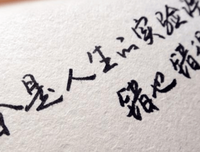 是人生的实验
错也错